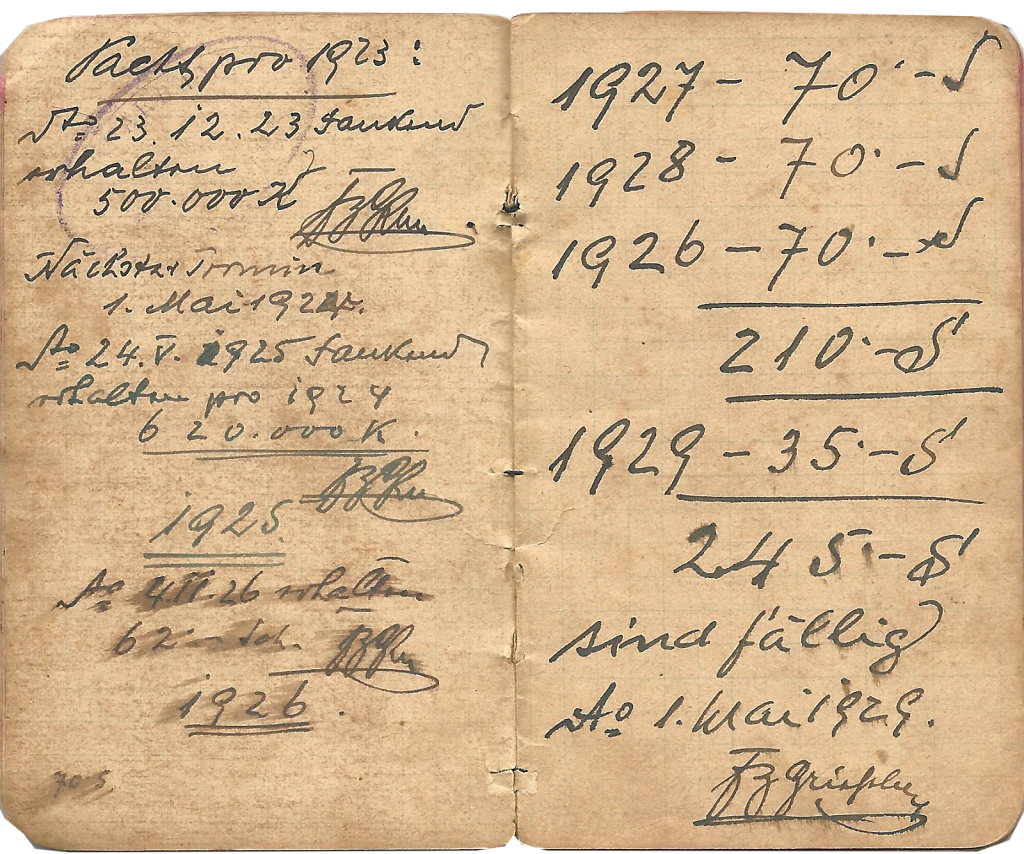 Pacht pro 1923:
Ao 23.12.23 dankend
erhalten
500.000 K
Nächster Termin
1. Mai 1924.
Ao 24.V.1925 dankend
erhalten pro 1924
620.000 K.
1925.
Ao 26 erhalten
62 - Sch.
1926.
70 S
1927 - 70· - S
1928 - 70· - S
1926 - 70· - S
210· - S
1929 - 35· - S
245· - S
sind fällig
Ao 1. Mai 1929.